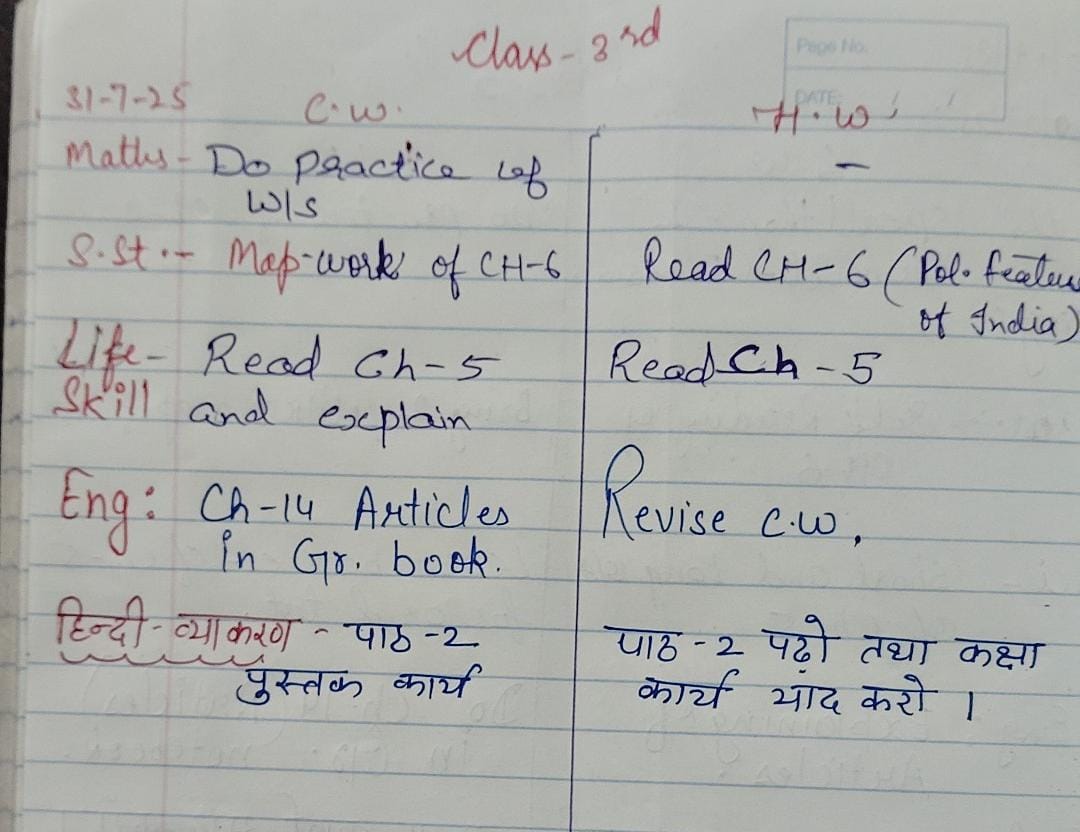 Class - 3rd
Page No.
DATE: / /
31-7-25 C.W. H.W.
Maths - Do practice of -
W/S
S.St. - Map-work of CH-6 Read CH-6 (Pol. features
of India)
Life- Read Ch-5 Read Ch-5
Skill and explain
Eng: Ch-14 Articles Revise C.W.
in Gr. book.
हिन्दी-व्याकरण - पाठ-2 पाठ-2 पढ़ो तथा कक्षा
पुस्तक कार्य कार्य यांद करो ।